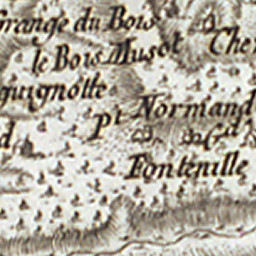 Grange du Bois
le Bois Musot
Che
guignolle
Pt Normand
d
Gd
Fontenille